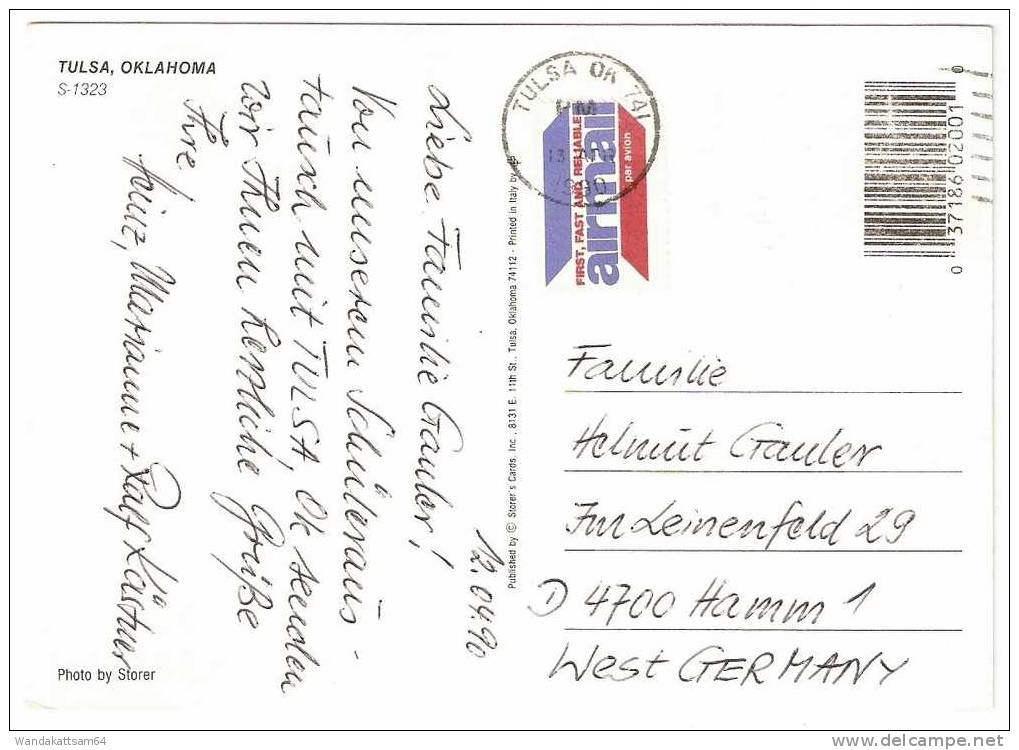 TULSA, OKLAHOMA
S-1323
12.04.90
Liebe Familie Gauler!
Von unserem Schüleraus-
tausch mit TULSA, OK senden
wir Ihnen herzliche Grüße
Ihre
Heinz, Marianne + Ralf Kästner
Photo by Storer
Published by © Storer's Cards, Inc., 8131 E. 11th St., Tulsa, Oklahoma 74112 - Printed in Italy by
TULSA OK 741
PM
13
1990
FIRST, FAST AND RELIABLE
airmail
par avion
0 37186 02001 0
Familie
Helmut Gauler
Im Leinenfeld 29
D 4700 Hamm 1
West GERMANY
Wandakattsam64
delcampe.net